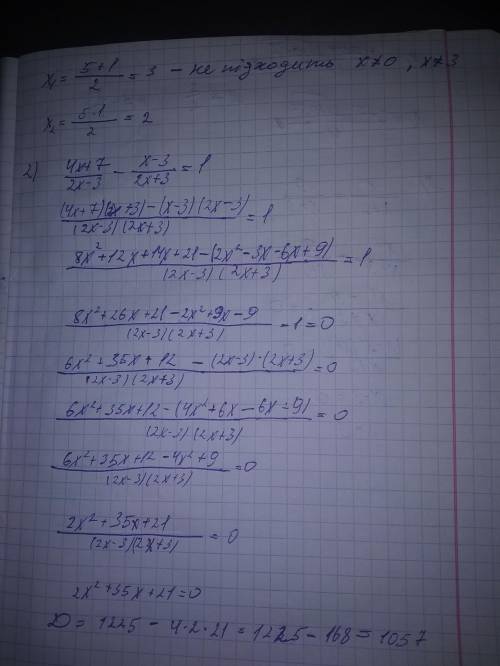 x₁ = (5+1)/2 = 3 – не підходить x≠0, x≠3
x₂ = (5-1)/2 = 2
2) (4x+7)/(2x-3) - (x-3)/(2x+3) = 1
((4x+7)(2x+3) - (x-3)(2x-3))/((2x-3)(2x+3)) = 1
(8x²+12x+14x+21-(2x²-3x-6x+9))/((2x-3)(2x+3)) = 1
(8x²+26x+21-2x²+9x-9)/((2x-3)(2x+3)) - 1 = 0
(6x²+35x+12 - (2x-3)·(2x+3))/((2x-3)(2x+3)) = 0
(6x²+35x+12-(4x²+6x-6x-9))/((2x-3)(2x+3)) = 0
(6x²+35x+12-4x²+9)/((2x-3)(2x+3)) = 0
(2x²+35x+21)/((2x-3)(2x+3)) = 0
2x²+35x+21=0
D = 1225 - 4·2·21 = 1225 - 168 = 1057